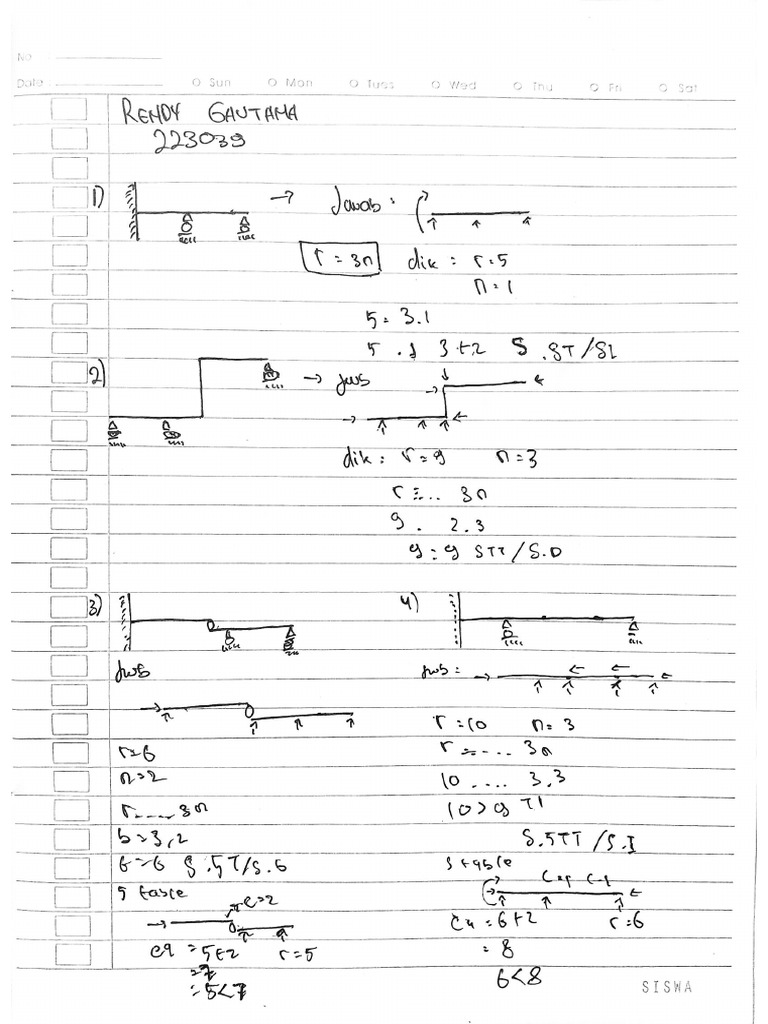 No :
Date :
O Sun O Mon O Tues O Wed O Thu O Fri O Sat
RENDY GAUTAMA
223039
1) → Jawab :
r = 3n dik : r = 5
n = 1
5 = 3.1
5 . 3 + 2 S .ST/SI
2) → jwb
dik : r = 9 n = 3
r = .. 3n
9 . 2.3
9 = 9 STT/S.D
3) 4)
jwb
jwb :
r = 10 n = 3
r=6
r = -... 3n
n = 2
10 .... 3.3
r....3n
10 > 9 TI
b = 3,2
S.5TT/S.I
6 = 6 S.5T/S.6
Stable
5 table
e=2
Cu = 6+2 r = 6
eq = 5+2 r = 5
= 8
= 7
6 < 8
= 5<7
SISWA